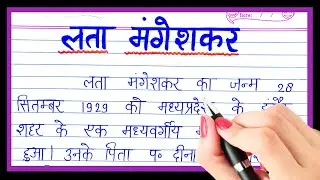 लता मंगेशकर
लता मंगेशकर का जन्म 28
सितम्बर 1929 को मध्यप्रदेश के
शहर के एक मध्यवर्गीय
हुआ। उनके पिता प० दीना